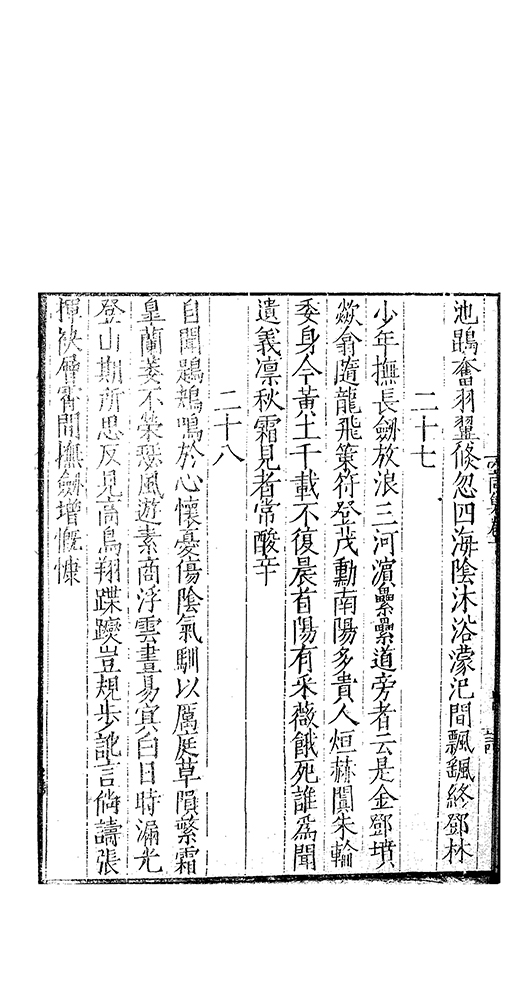 池鵾奮羽翼倏忽四海陰沐浴濛汜間飄颻終鄧林
二十七
少年撫長劒放浪三河濵纍纍道旁者云是金鄧墳
歘翕隨龍飛策符登茂勳南陽多貴人烜赫闐朱輪
委身今黄土千載不復晨首陽有采薇餓死誰爲聞
遺義凛秋霜見者常酸辛
二十八
自聞鶗鴂鳴於心懷憂傷陰氣馴以厲庭草隕蘩霜
皐蘭萎不榮瑟風遊素商浮雲晝易㝠白日時漏光
登山期所思反見高鳥翔蹀躞豈規歩訛言倘譸張
揮袂層霄間撫劒增慨慷